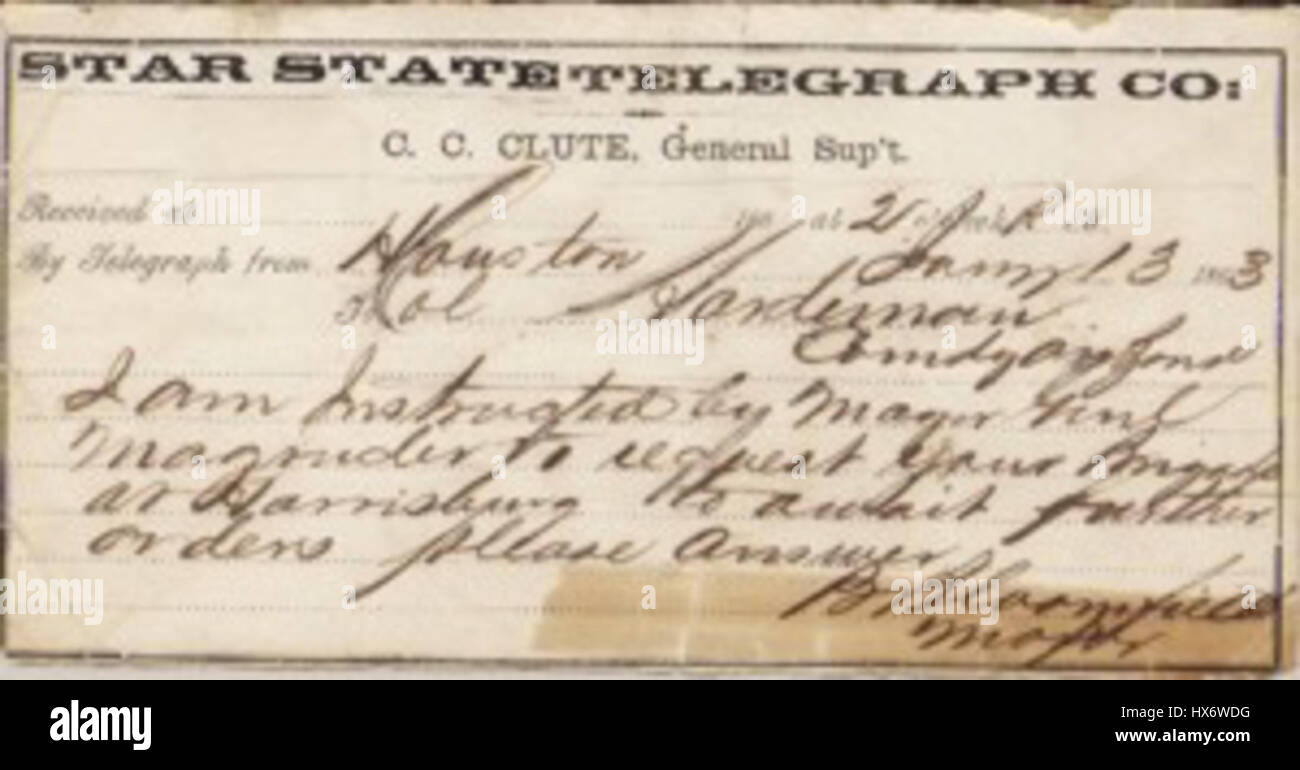 STAR STATE TELEGRAPH CO:
C. C. CLUTE, General Sup't.
Received at at 2 o'clk
By Telegraph from Houston Jany 13 1863
To Col Hardeman
Comdg
I am Instructed by Mayor Genl
Magruder to request your
at Harrisburg to await further
orders please answer
Bloomfield
Major
alamy
Image ID: HX6WDG
www.alamy.com